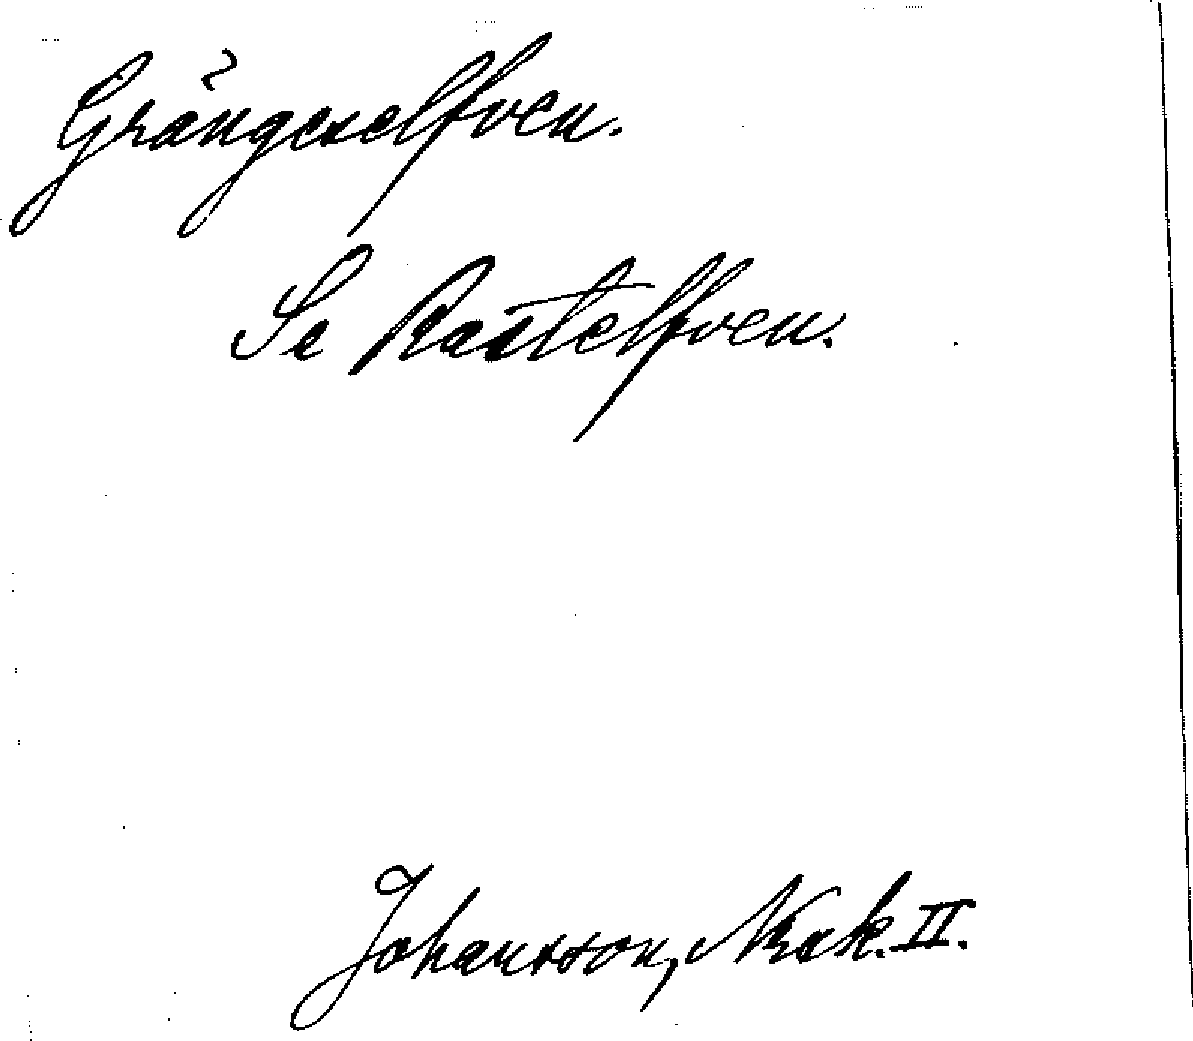 Grängeselfven.
Se Rastelfven.
Johansson, II.